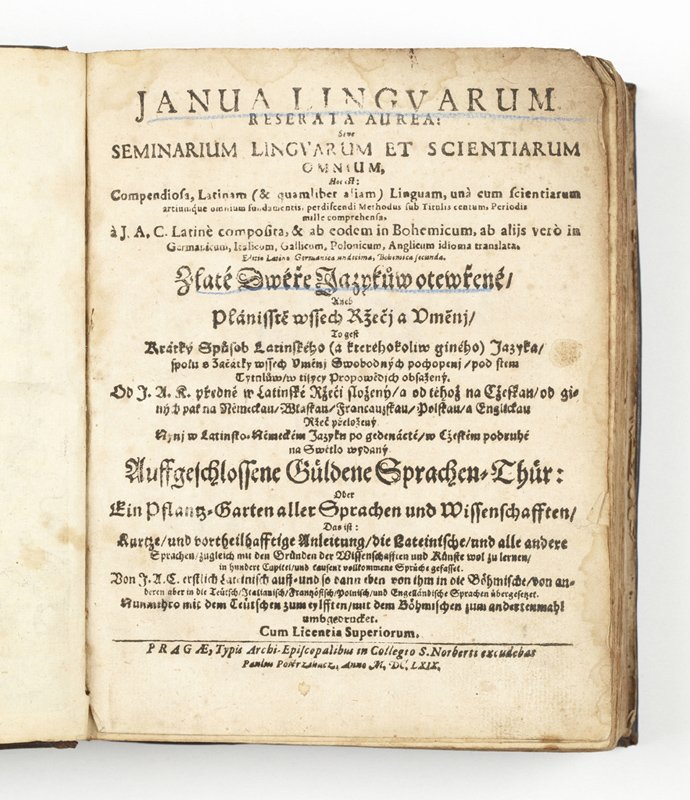 JANUA LINGVARUM
RESERATA AUREA:
Sive
SEMINARIUM LINGVARUM ET SCIENTIARUM
OMNIUM,
Hoc est:
Compendiosa, Latinam (& quamlibet aliam) Linguam, unà cum scientiarum
artiumque omnium fundamentis, perdiscendi Methodus sub Titulis centum, Periodis
mille comprehensa,
à J. A. C. Latinè composita, & ab eodem in Bohemicum, ab alijs verò in
Germanicum, Italicum, Gallicum, Polonicum, Anglicum idioma translata.
Editio Latino Germanica undecima, Bohemica secunda.
Zlaté Dwéře Jazykůw otewřené/
Aneb
Plánisstě wssech Ržečj a Vměnj/
To gest
Krátký Spůsob Latinského (a kteréhokoliw giného) Jazyka/
spolu s Začátky wssech Vměnj Swobodných pochopenj/ pod stem
Tytulůw/ w tisýcy Propowědjch obsažený.
Od J. A. K. předně w Latinské Ržeči složený/ a od téhož na Cžeskau/ od gi-
ných pak na Německau/ Wlaskau/ Francauzskau/ Polskau/ a Englickau
Ržeč přeložený
Nynj w Latinsko-Německém Jazyku po gedenácté/ w Cžeském podruhé
na Swětlo wydaný
Auffgeschlossene Güldene Sprachen-Thür:
Oder
Ein Pflantz-Garten aller Sprachen und Wissenschafften/
Das ist:
Kurtze/ und vortheilhafftige Anleitung/ die Lateinische/ und alle andere
Sprachen/ zugleich mit den Gründen der Wissenschafften und Künste wol zu lernen/
in hundert Capitel/ und tausent vollkommene Sprüche gefasset.
Von J. A. C. erstlich Lateinisch auff- und so dann eben von ihm in die Böhmische/ von an-
deren aber in die Teütsch/ Italianisch/ Französisch/ Polnisch/ und Engelländische Sprachen übergesetzet.
Nunmehro mit dem Teütschen zum eylfften/ mit dem Böhmischen zum andertenmahl
umbgedrucket.
Cum Licentia Superiorum.
PRAGÆ, Typis Archi-Episcopalibus in Collegio S. Norberti excudebat
Paulus Anno M. DC. LXIX.